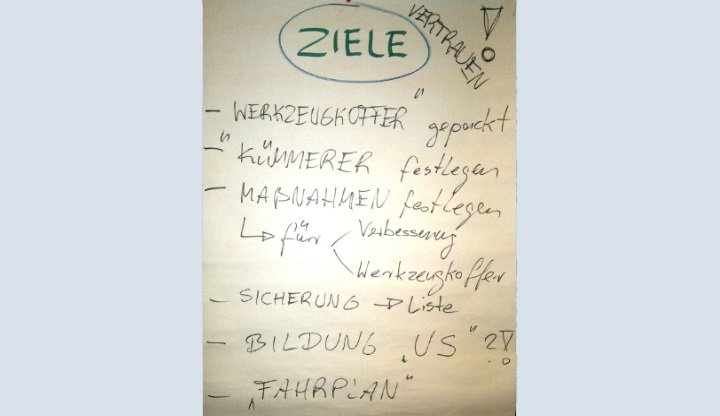 ZIELE
VERTRAUEN !
- WERKZEUGKOFFER" gepackt
- "KÜMMERER festlegen
- MAßNAHMEN festlegen
↳ für Verbesserung
Werkzeugkoffer
- SICHERUNG → Liste
- BILDUNG „US" ?!
- „FAHRPLAN"